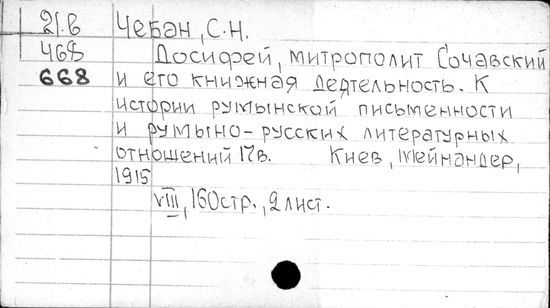 21.в Чебан, С.Н.
468 Досифей, митрополит Сочавский
668 и его книжная деятельность. К
истории румынской письменности
и румыно-русских литературных
отношений 17в. Киев, Мейнандер,
1915
VIII, 160стр., 2 лист.